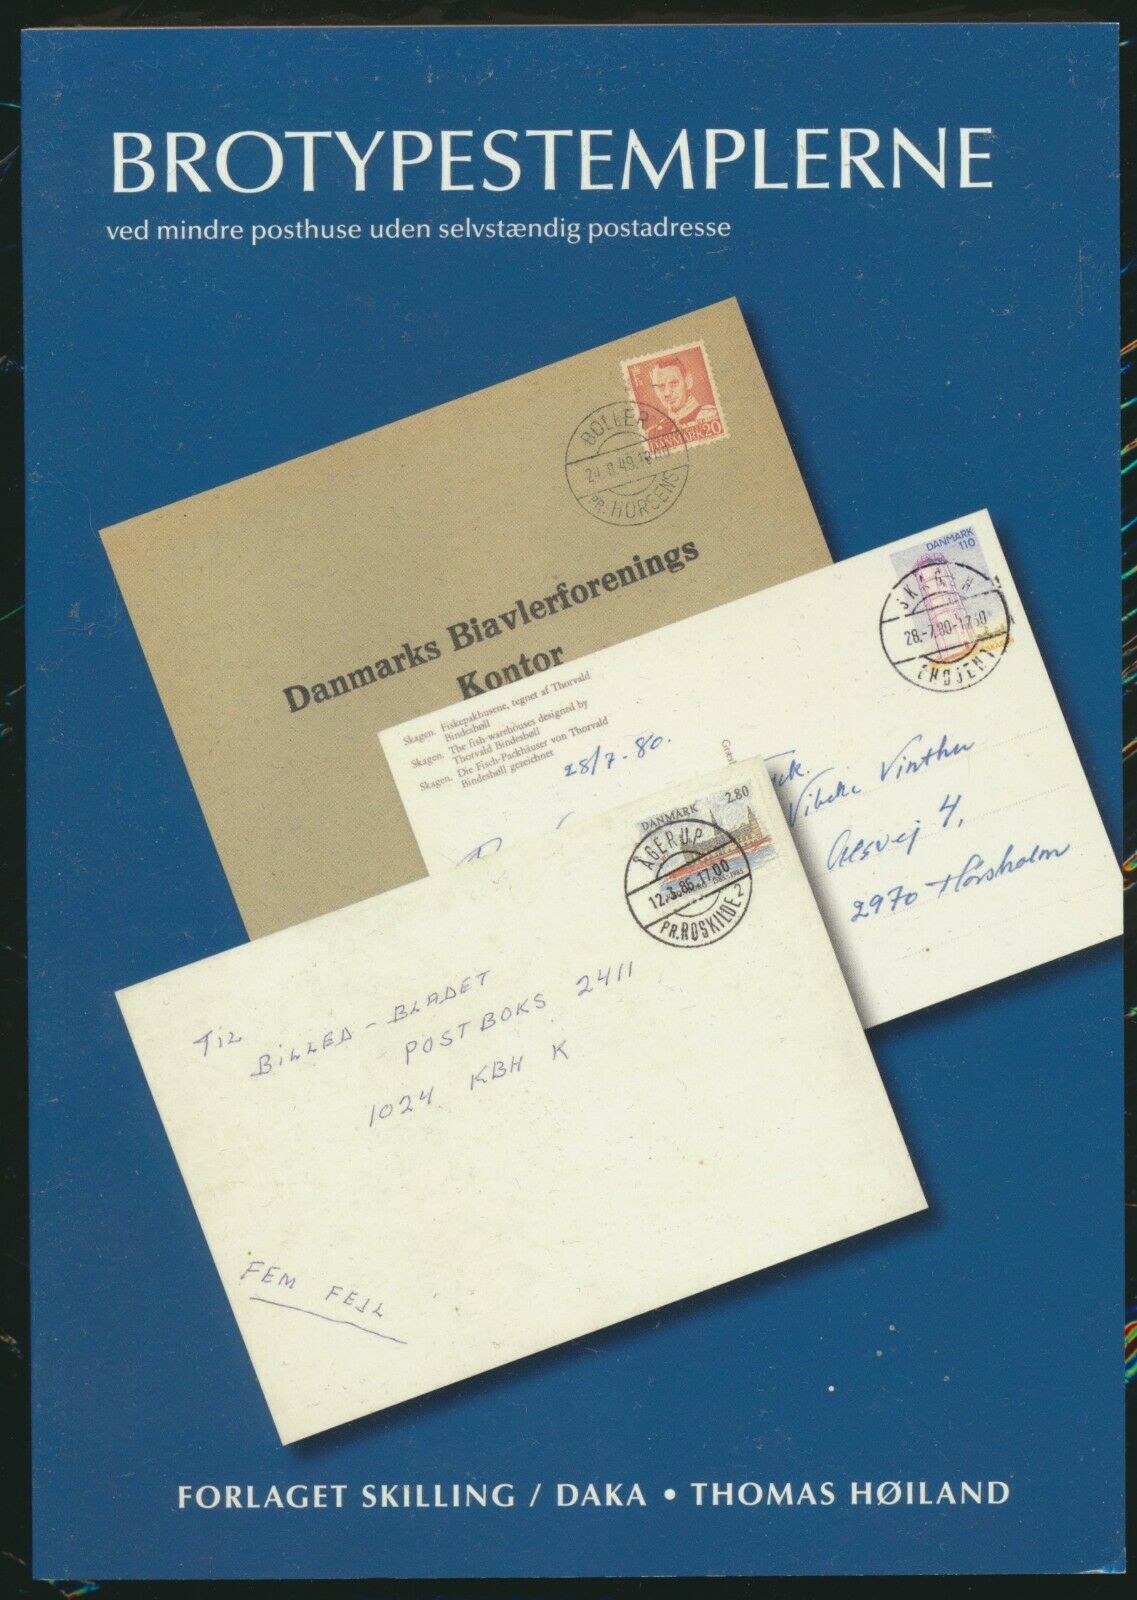 BROTYPESTEMPLERNE
ved mindre posthuse uden selvstændig postadresse
DANMARK 20
BOLLER
PR. HORSENS
Danmarks Biavlerforenings
Kontor
DANMARK
110
SKAGEN
28.-7.80-17.30
(HØJEN)
Skagen. Fiskepakhusene, tegnet af Thorvald
Bindesbøll
Skagen. The fish-warehouses designed by
Thorvald Bindesbøll
Skagen. Die Fisch-Packhäuser von Thorvald
Bindesbøll gezeichnet
28/7-80.
Vibeke Vinther
Alsvej 4,
2970 Hørsholm
DANMARK 2.80
ÅGERUP
12.3.86.17.00
PR. ROSKILDE 2
TIL
BILLED-BLADET
POSTBOKS 2411
1024 KBH K
FEM FEJL
FORLAGET SKILLING / DAKA • THOMAS HØILAND